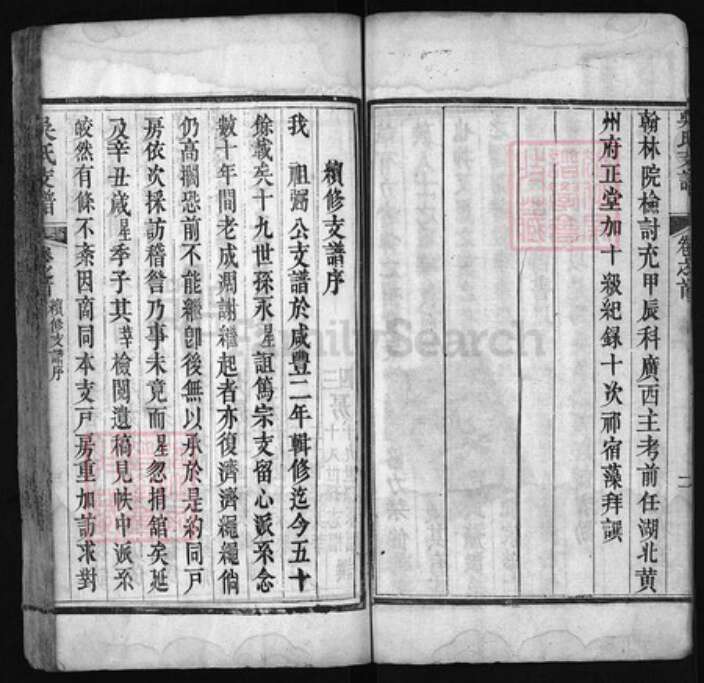 翰林院檢討充甲辰科廣西主考前任湖北黃
州府正堂加十級紀錄十次祁宿藻拜譔
吳氏支譜
卷之首
二
續修支譜序
我 祖弼公支譜於咸豐二年輯修迄今五十
餘載矣十九世孫永星誼篤宗支留心派系念
數十年間老成凋謝繼起者亦復濟濟繩繩倘
仍高擱恐前不能繼卽後無以承於是約同戶
房依次採訪稽咎乃事未竟而星忽捐舘矣延
及辛丑歲星季子其華檢閱遺稿見帙中派系
皎然有條不紊因商同本支戸房重加訪求對
吳氏支譜
卷之首
續修支譜序
FamilySearch